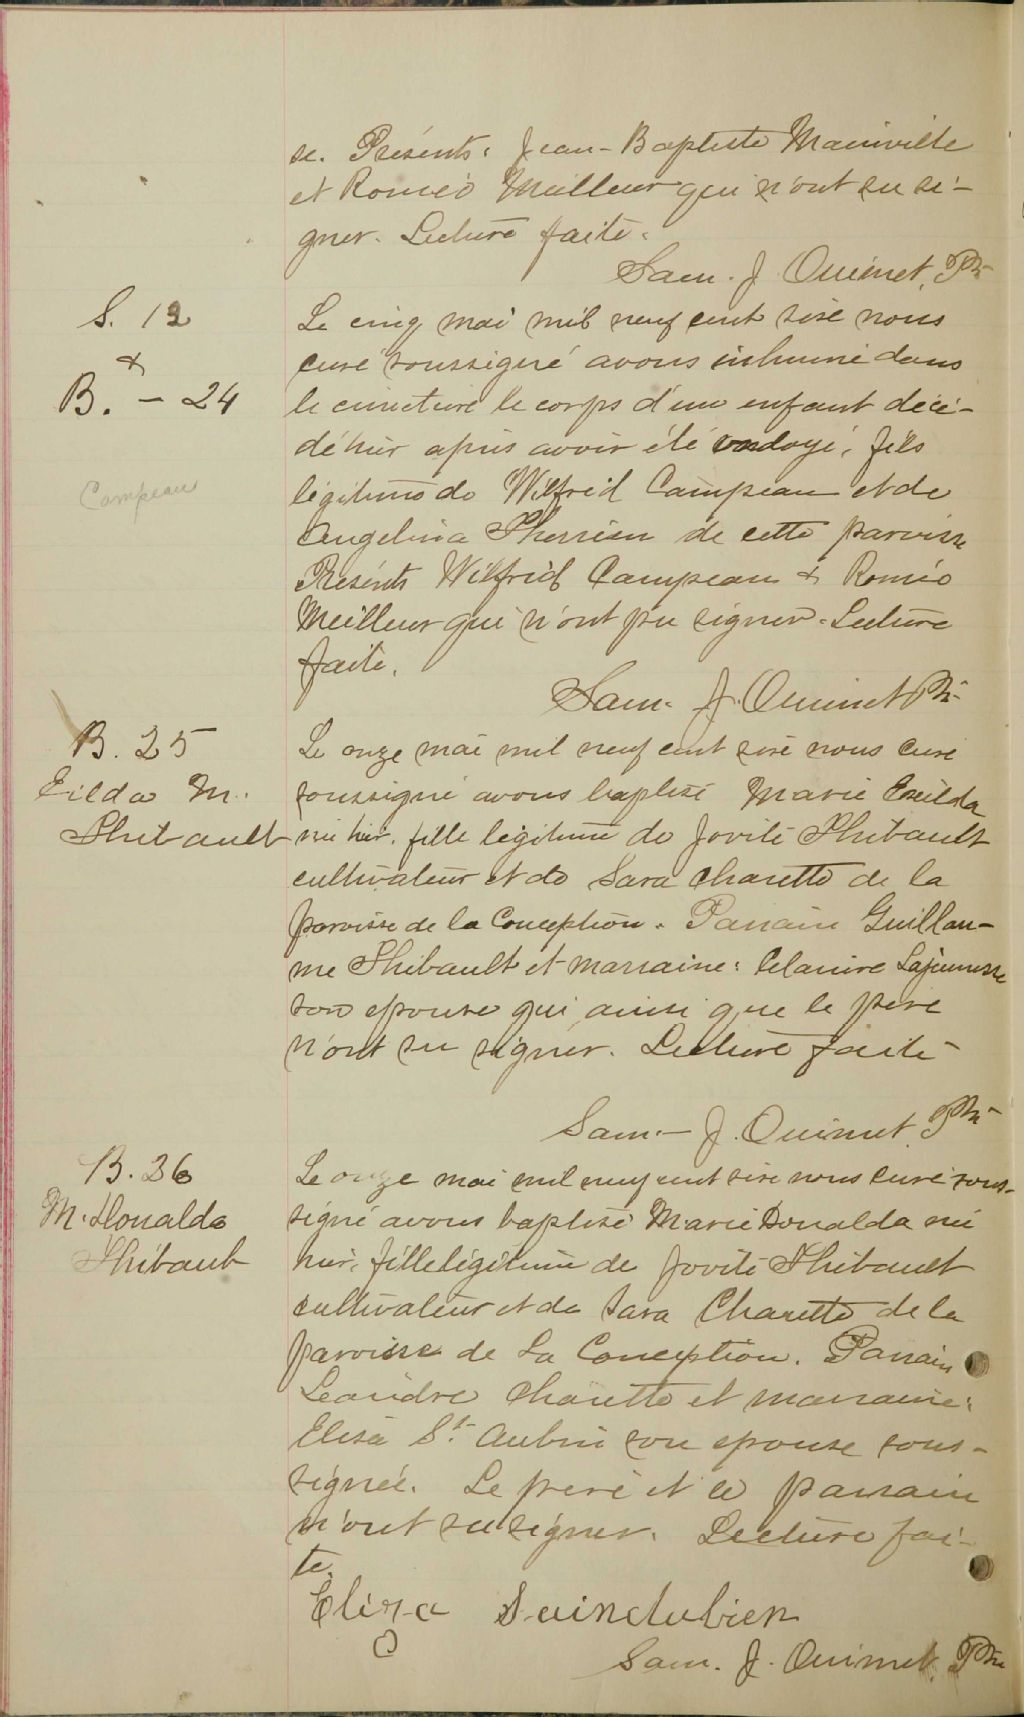 se. Présents: Jean-Baptiste Mainville
et Roméo Meilleur qui n'ont su si-
gner. Lecture faite.
Sam. J. Ouimet, Ptr
S. 12
&
B. - 24
Campeau
Le cinq mai mil neuf cent seize nous
curé soussigné avons inhumé dans
le cimetière le corps d'un enfant décé-
dé hier après avoir été ondoyé, fils
légitime de Wilfrid Campeau et de
Angelina Therrien de cette paroisse
Présents Wilfrid Campeau & Roméo
Meilleur qui n'ont pu signer. Lecture
faite.
Sam. J. Ouimet Ptr
B. 25
Eilda M.
Thibault
Le onze mai mil neuf cent seize nous curé
soussigné avons baptisé Marie Exeilda
née hier, fille légitime de Jovite Thibault
cultivateur et de Sara Charette de la
paroisse de la Conception. Parrain Guillau-
me Thibault et marraine: Celanire Lajeunesse
son epouse qui ainsi que le père
n'ont su signer. Lecture faite
Sam. J. Ouimet Ptr
B. 26
M. Donalda
Thibault
Le onze mai mil neuf cent seize nous curé sous-
signé avons baptisé Marie Donalda née
hier, fille légitime de Jovite Thibault
cultivateur et de Sara Charette de la
paroisse de La Conception. Parrain
Leandre Charette et marraine:
Elisa St. Aubin son epouse sous-
signée. Le père et le parrain
n'ont su signer. Lecture fai-
te.
Eliza Saindubien
Sam. J. Ouimet, Ptr